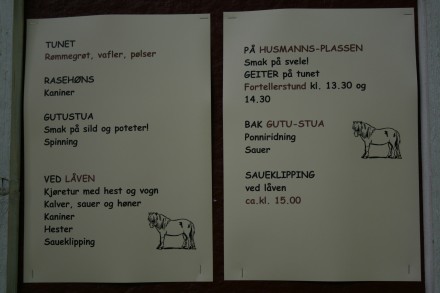 TUNET
Rømmegrøt, vafler, pølser
RASEHØNS
Kaniner
GUTUSTUA
Smak på sild og poteter!
Spinning
VED LÅVEN
Kjøretur med hest og vogn
Kalver, sauer og høner
Kaniner
Hester
Saueklipping
PÅ HUSMANNS-PLASSEN
Smak på svele!
GEITER på tunet
Fortellerstund kl. 13.30 og
14.30
BAK GUTU-STUA
Ponniridning
Sauer
SAUEKLIPPING
ved låven
ca.kl. 15.00